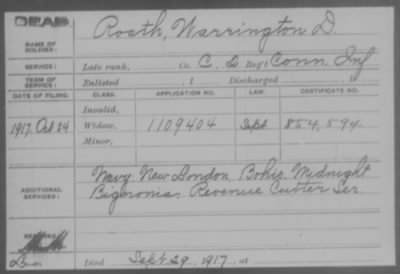 DEAD.
NAME OF SOLDIER: Roath, Warrington D.
SERVICE: Late rank, Co. C, 2, Reg't Conn. Inf
TERM OF SERVICE: Enlisted , 1 Discharged , 1
DATE OF FILING. CLASS. APPLICATION NO. LAW. CERTIFICATE NO.
Invalid,
1917 Oct 24 Widow, 1109404 Sept 854,594
Minor,
ADDITIONAL SERVICES: Navy: New London, Bohio, Midnight
Bignonia. Revenue Cutter Ser.
REMARKS:
Died Sept 29, 1917, at